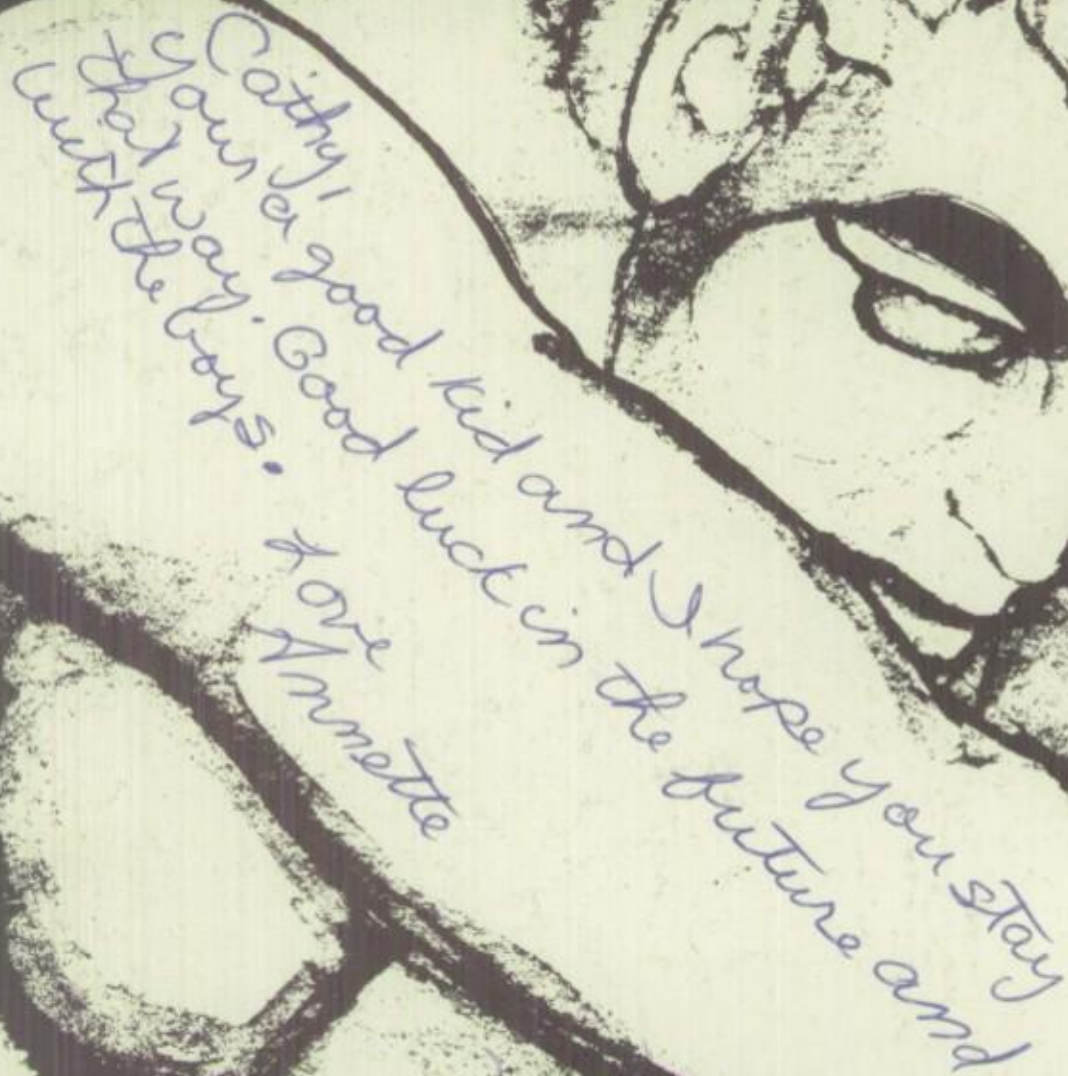 Cathy,
Your a good kid and I hope you stay
that way. Good luck in the future and
with the boys.
Love
Annette